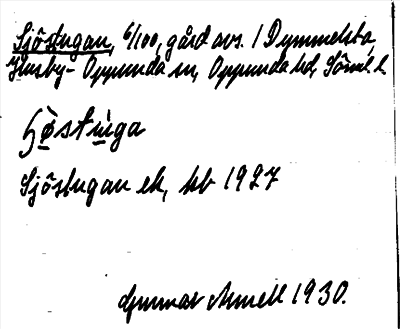 Sjöstugan, 6/100, gård avs. / Dymmelsta,
Husby-Oppunda sn, Oppunda hd, Söml. l.
Sjöstugan ek, kb 1927
Gunnar 1930.